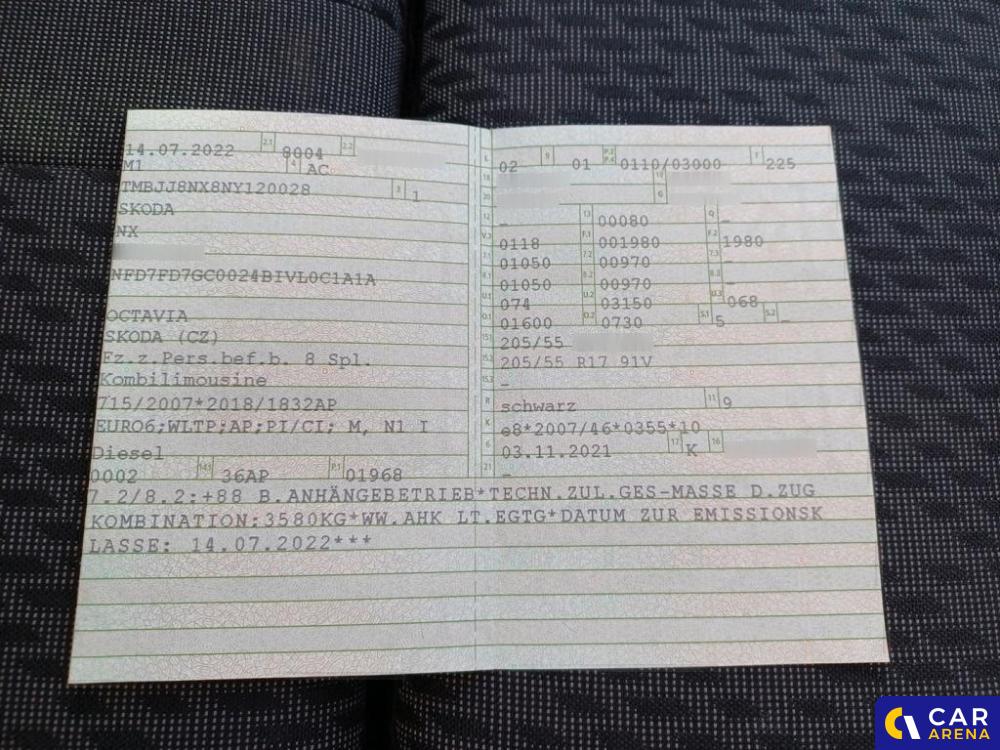 14.07.2022 2.1 8004 2.2
M1 4 AC
TMBJJ8NX8NY120028 3 1
SKODA
NX
NFD7FD7GC0024BIVL0C1A1A
OCTAVIA
SKODA (CZ)
Fz.z.Pers.bef.b. 8 Spl.
Kombilimousine
715/2007*2018/1832AP
EURO6;WLTP;AP;PI/CI; M, N1 I
Diesel
0002 14.1 36AP P.1 01968
L 02 9 01 P.2 P.4 0110/03000 T 225
18 19
20 G
12 – 13 00080 Q –
V.7 0118 F.1 001980 F.2 1980
7.1 01050 7.2 00970 7.3 –
8.1 01050 8.2 00970 8.3 –
U.1 074 U.2 03150 U.3 068
O.1 01600 O.2 0730 S.1 5 S.2 –
15.1 205/55
15.2 205/55 R17 91V
15.3 –
R schwarz 11 9
K e8*2007/46*0355*10
6 03.11.2021 17 K 16
21 –
7.2/8.2:+88 B.ANHÄNGEBETRIEB*TECHN.ZUL.GES-MASSE D.ZUG
KOMBINATION:3580KG*WW.AHK LT.EGTG*DATUM ZUR EMISSIONSK
LASSE: 14.07.2022***
CAR
ARENA